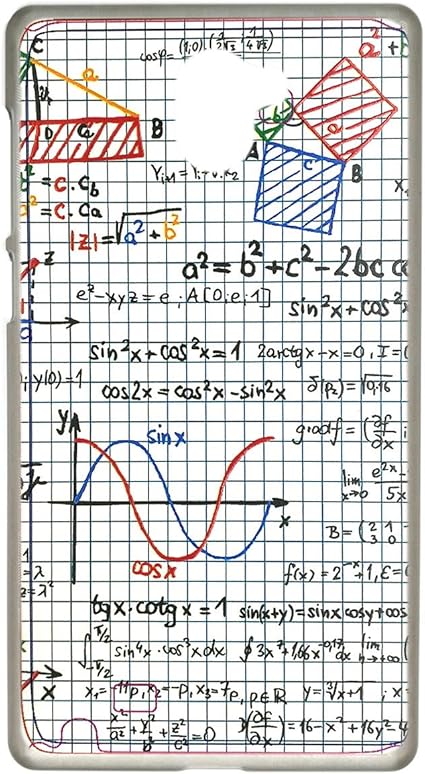 C
cosφ =
a² +
a
D
Ca
B
= c.Cb
= c.Ca
|z| = √a² + b²
A
c
a
B
a² = b² + c² - 2bc co
z
e² - xyz = e ; A[0;e;1]
sin²x + cos²
sin²x + cos²x = 1
2arctgx - x = 0, I = (
; y(0) = 1
cos2x = cos²x - sin²x
δ(P₂) = √0,16
y
sin x
gradf = (∂f/∂x ;
lim x→0 e²ˣ - / 5x
x
B = (2 1 / 3 0
cos x
= λ
= λ²
f(x) = 2⁻ˣ + 1, ε = (
tgx · cotgx = 1
sin(x+y) = sinx cosy + cos
∫ π/2 -π/2 sin⁴x · cos³x dx
∮ 3x⁷ + 1,66x⁻⁰,¹⁷ dx
lim n→+∞
x
x₁ = -11p, x₂ = -p, x₃ = 7p, p∈R
y = ³√x+1 ; x
x²/a² + y²/b² + z²/c² = 0
(∂f/∂x) = 16 - x² + 16y² - 4